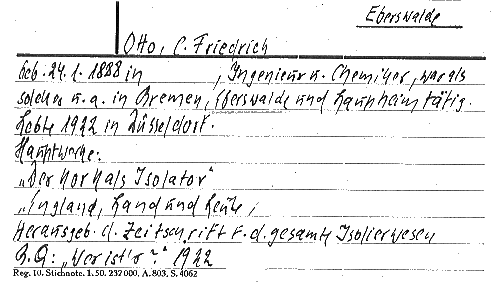 Eberswalde
Otto, C. Friedrich
geb. 24.1.1888 in , Ingenieur u. Chemiker, war als
solcher u.a. in Bremen, Eberswalde und Laupheim tätig.
Lebte 1922 in Düsseldorf.
Hauptwerke:
„Der Kork als Isolator“
„England, Land und Leute,
Herausgeb. d. Zeitschrift f. d. gesamte Isolierwesen
B.Q: „Wer ist's?“ 1922
Reg. 10. Stichnote. 1. 50. 232000. A. 803. S. 4062